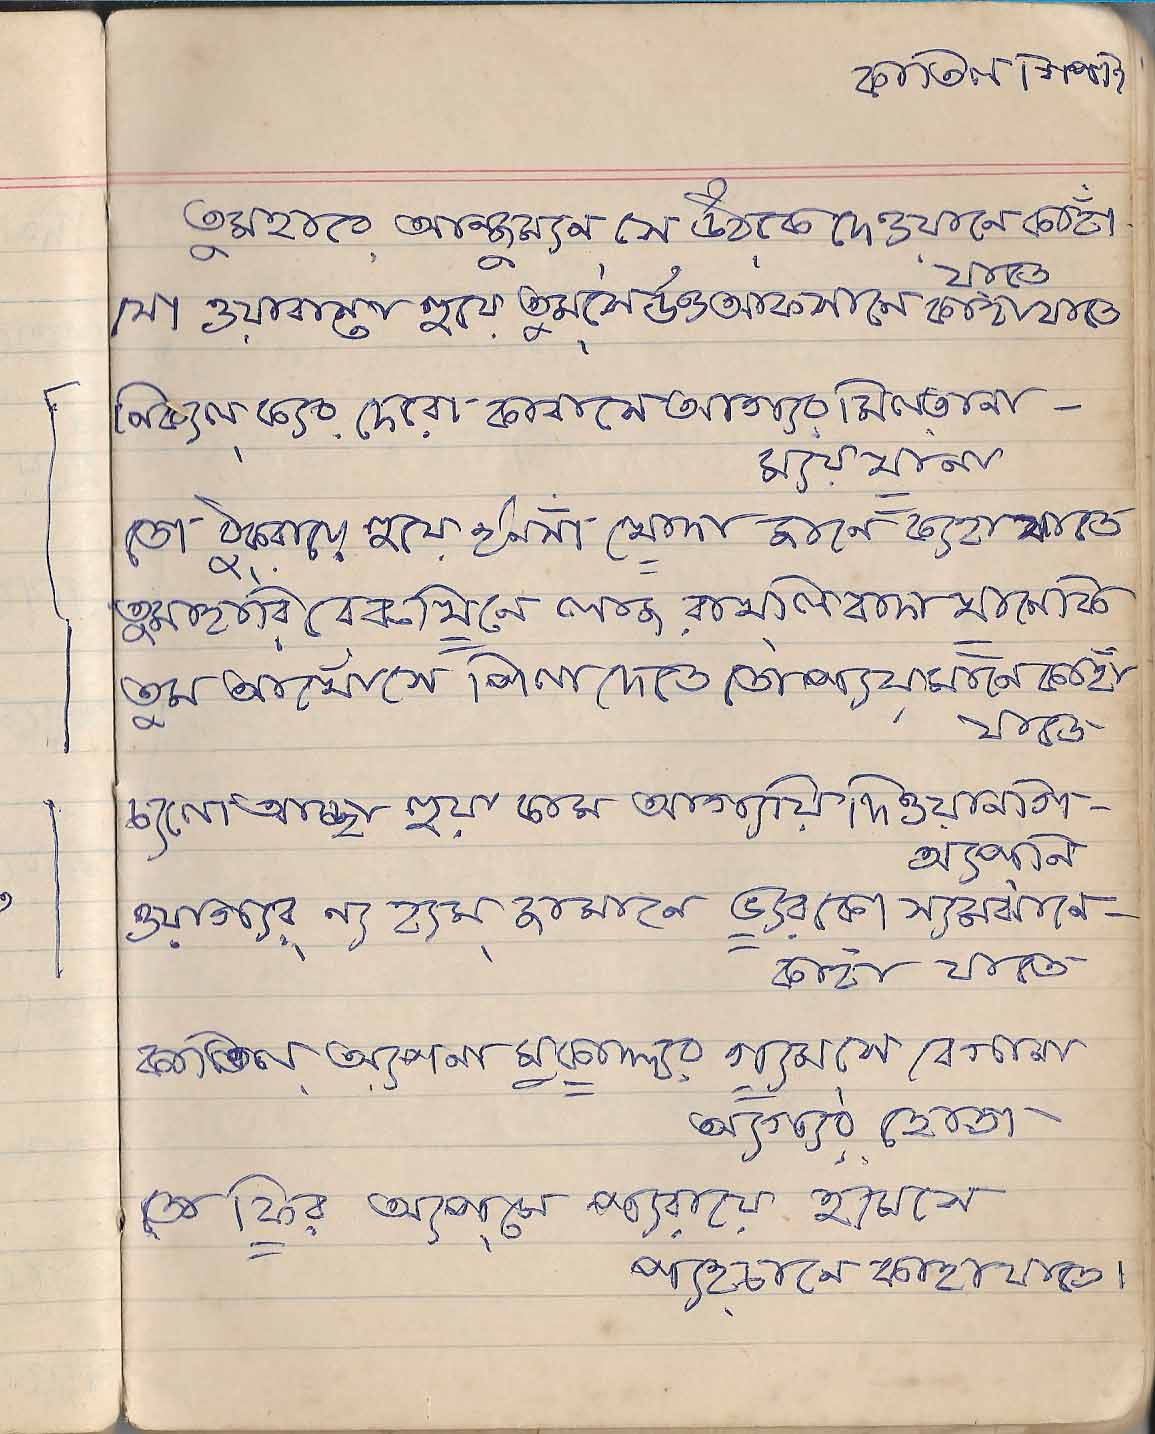 কাতিল শিপাই
তুমহারে আন্জুমান্ সে উঠ্‌কে দেওয়ানে কাহাঁ
যাতে
যো ওয়াবাস্তা হুয়ে তুম্‌সে উও আফসানে কাহাঁ যাতে
নিক্যল্ ক্যর্ দেরো কাবাসে আগ্যর্ মিল্‌তা না –
ম্যয়্ খানা
তো ঠুক্‌রায়ে হুয়ে ইনসাঁ খোদা জানে ক্যহা যাতে
তুমাহারি বেরুখ্খিনে লাজ রাখ্‌লি বাদা খানে কি
তুম আঁখোসে পিলা দেতে তো প্যয়্‌মানে কাহাঁ
যাতে
চ্যলো আচ্ছা হুয়া কাম আগ্যয়ি দিওয়ানগি –
অ্যপ্‌নি
ওয়াগ্যর্ ন্য হ্যম্ জামানে ভ্যর্ কো স্যমঝানে –
কাহাঁ যাতে
কাতিল্ অ্যপনা মুকাদ্দ্যর গ্যমসে বেগানা
অ্যগ্যর্ হোতা
তো ফির্ অ্যপ্‌নে প্যরায়ে হ্যমসে
প্যহ্‌চানে কাহা যাতে।